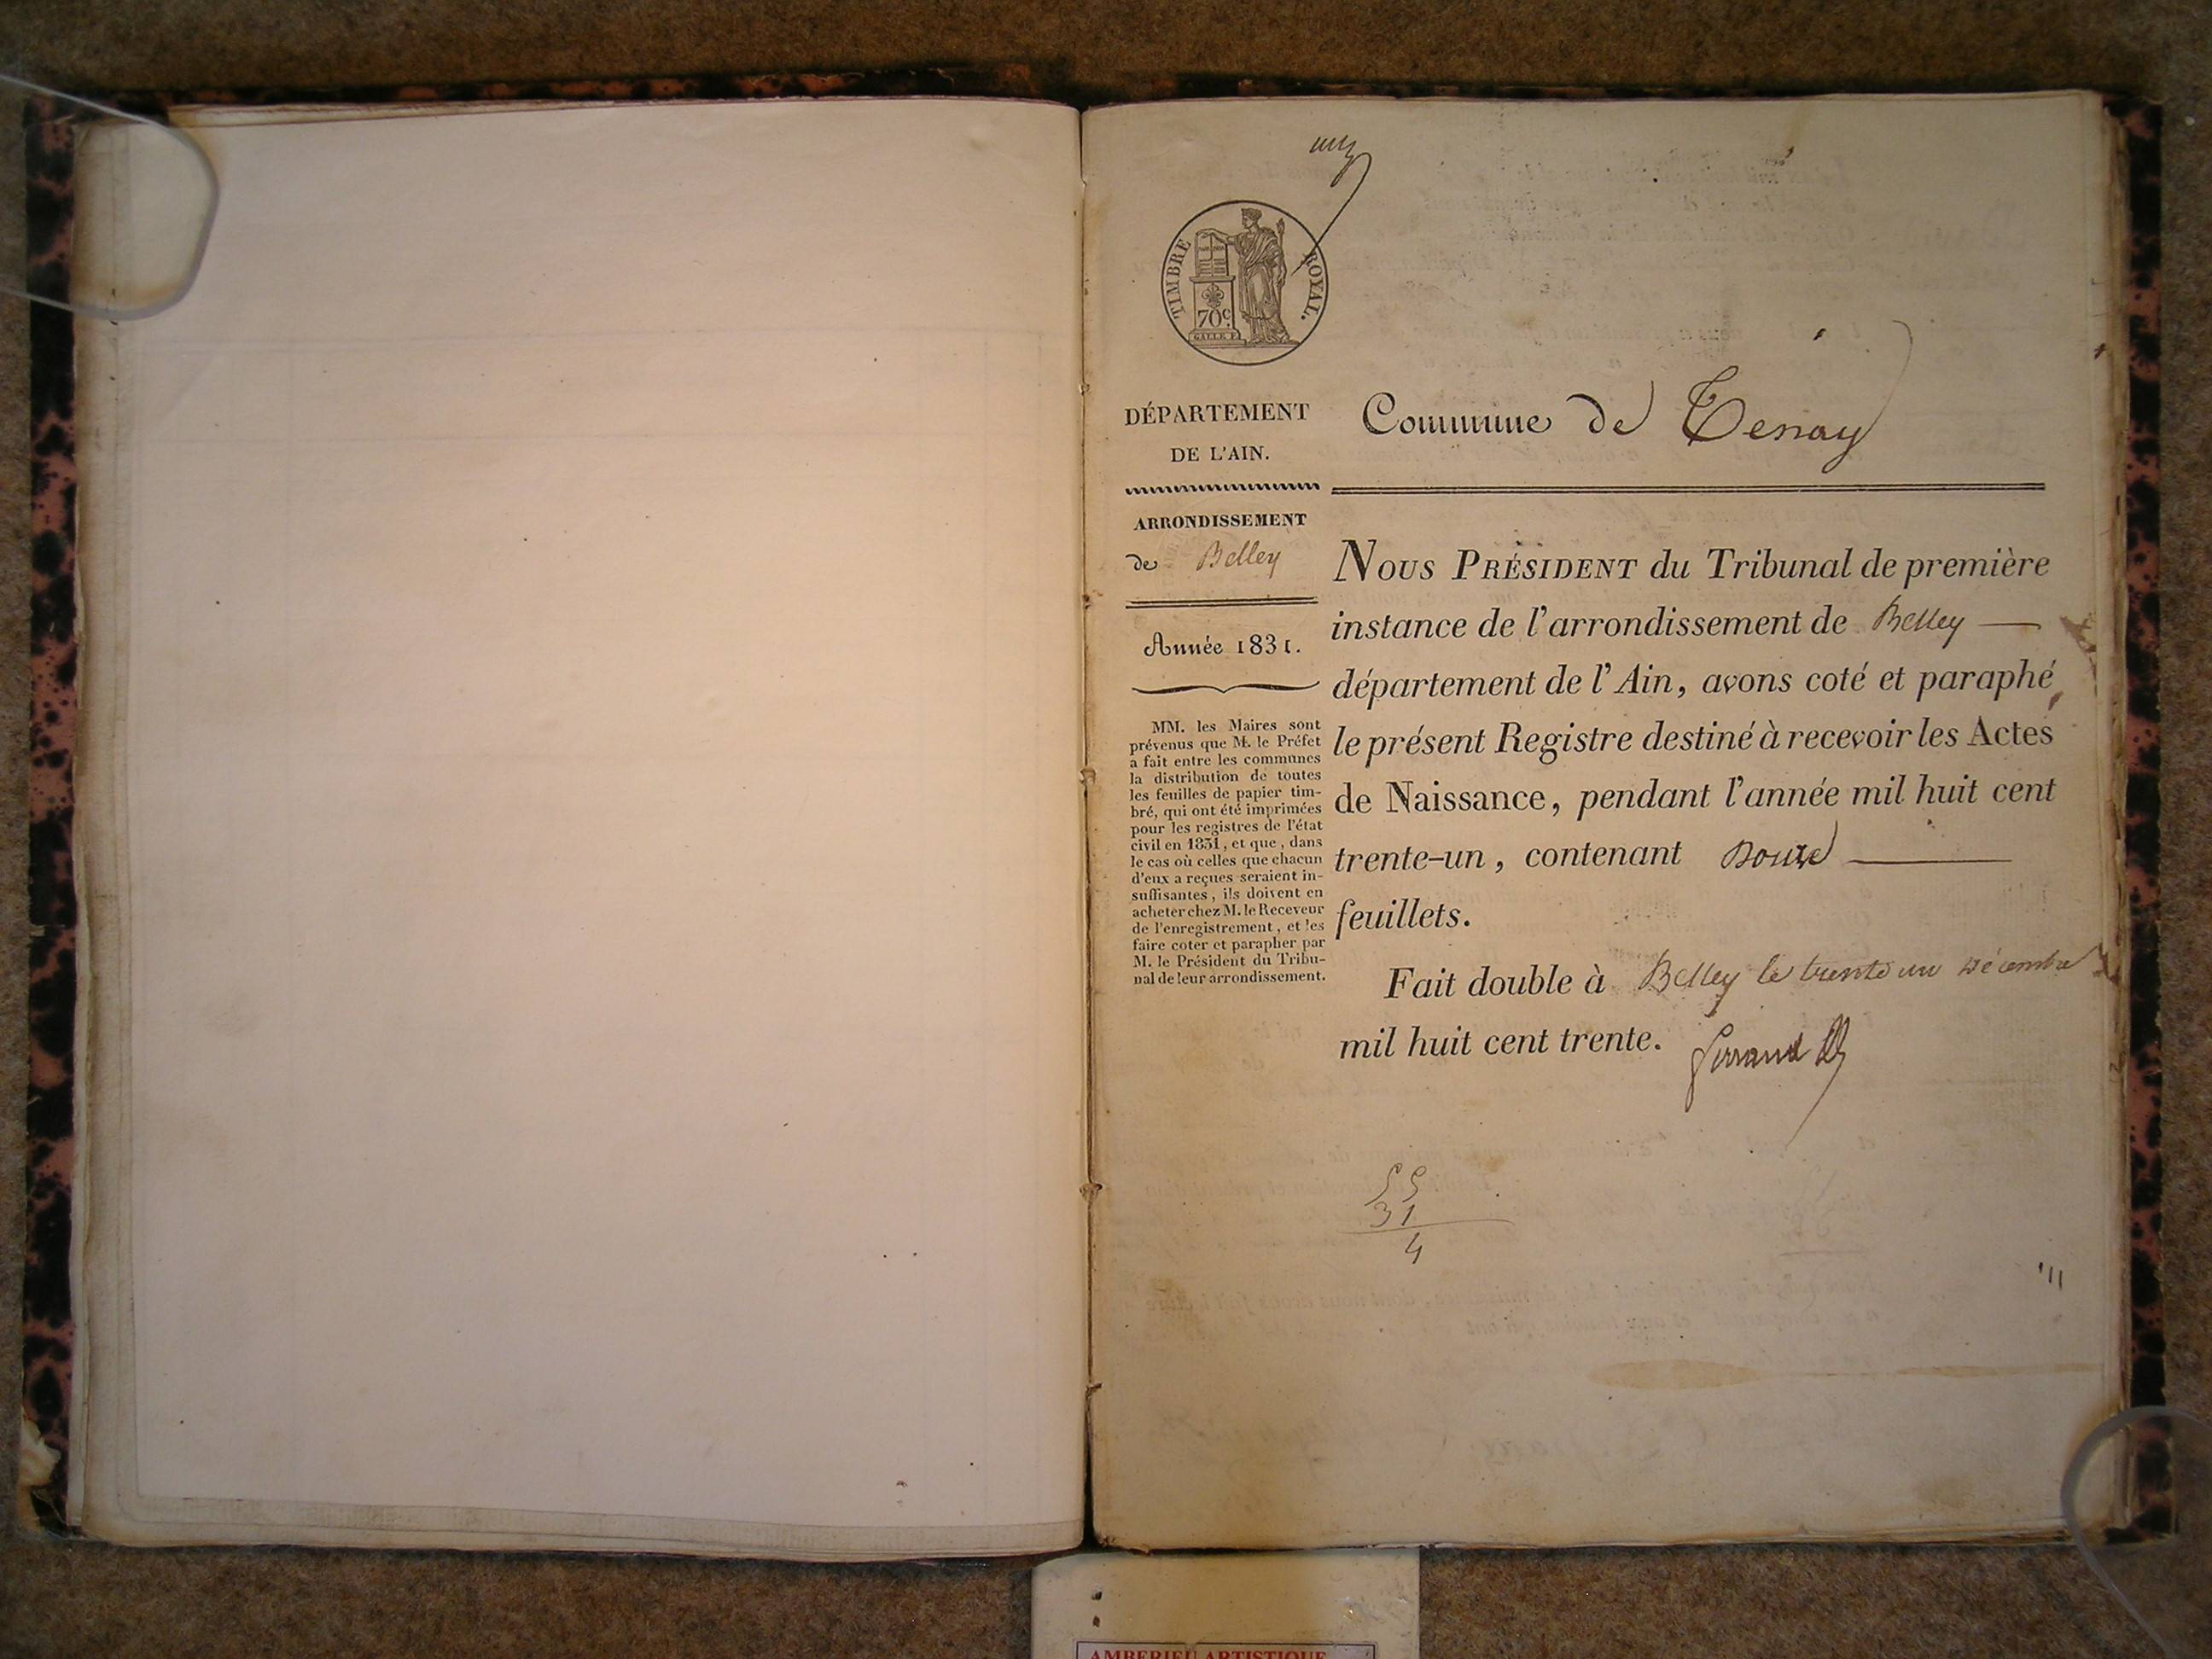 TIMBRE ROYAL.
70c.
DÉPARTEMENT
DE L'AIN.
Commune de Tenay
ARRONDISSEMENT
de Belley
Année 1831.
MM. les Maires sont
prévenus que M. le Préfet
a fait entre les communes
la distribution de toutes
les feuilles de papier tim-
bré, qui ont été imprimées
pour les registres de l'état
civil en 1831, et que, dans
le cas où celles que chacun
d'eux a reçues seraient in-
suffisantes, ils doivent en
acheter chez M. le Receveur
de l'enregistrement, et les
faire coter et parapher par
M. le Président du Tribu-
nal de leur arrondissement.
NOUS PRÉSIDENT du Tribunal de première
instance de l'arrondissement de Belley —
département de l'Ain, avons coté et paraphé
le présent Registre destiné à recevoir les Actes
de Naissance, pendant l'année mil huit cent
trente-un, contenant Douze —
feuillets.
Fait double à Belley le trente un Décembre
mil huit cent trente.
55
31
4
AMBERIEU ARTISTIQUE